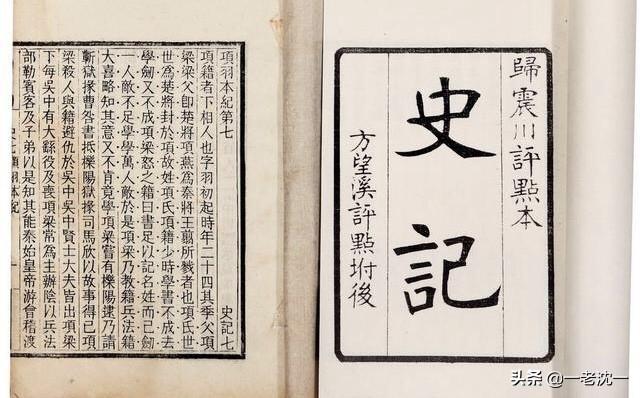 歸震川評點本
史記
方望溪評點坿後
項羽本紀第七 史記七
項籍者下相人也字羽初起時年二十四其季父項
梁梁父即楚將項燕為秦將王翦所戮者也項氏世
世為楚將封於項故姓項氏項籍少時學書不成去
學劍又不成項梁怒之籍曰書足以記名姓而已劍
一人敵不足學學萬人敵於是項梁乃教籍兵法籍
大喜略知其意又不肯竟學項梁嘗有櫟陽逮乃請
蘄獄掾曹咎書抵櫟陽獄掾司馬欣以故事得已項
梁殺人與籍避仇於吳中吳中賢士大夫皆出項梁
下每吳中有大繇役及喪項梁常為主辦陰以兵法
部勒賓客及子弟以是知其能秦始皇帝游會稽渡
項羽本紀
头条 @一老沈一